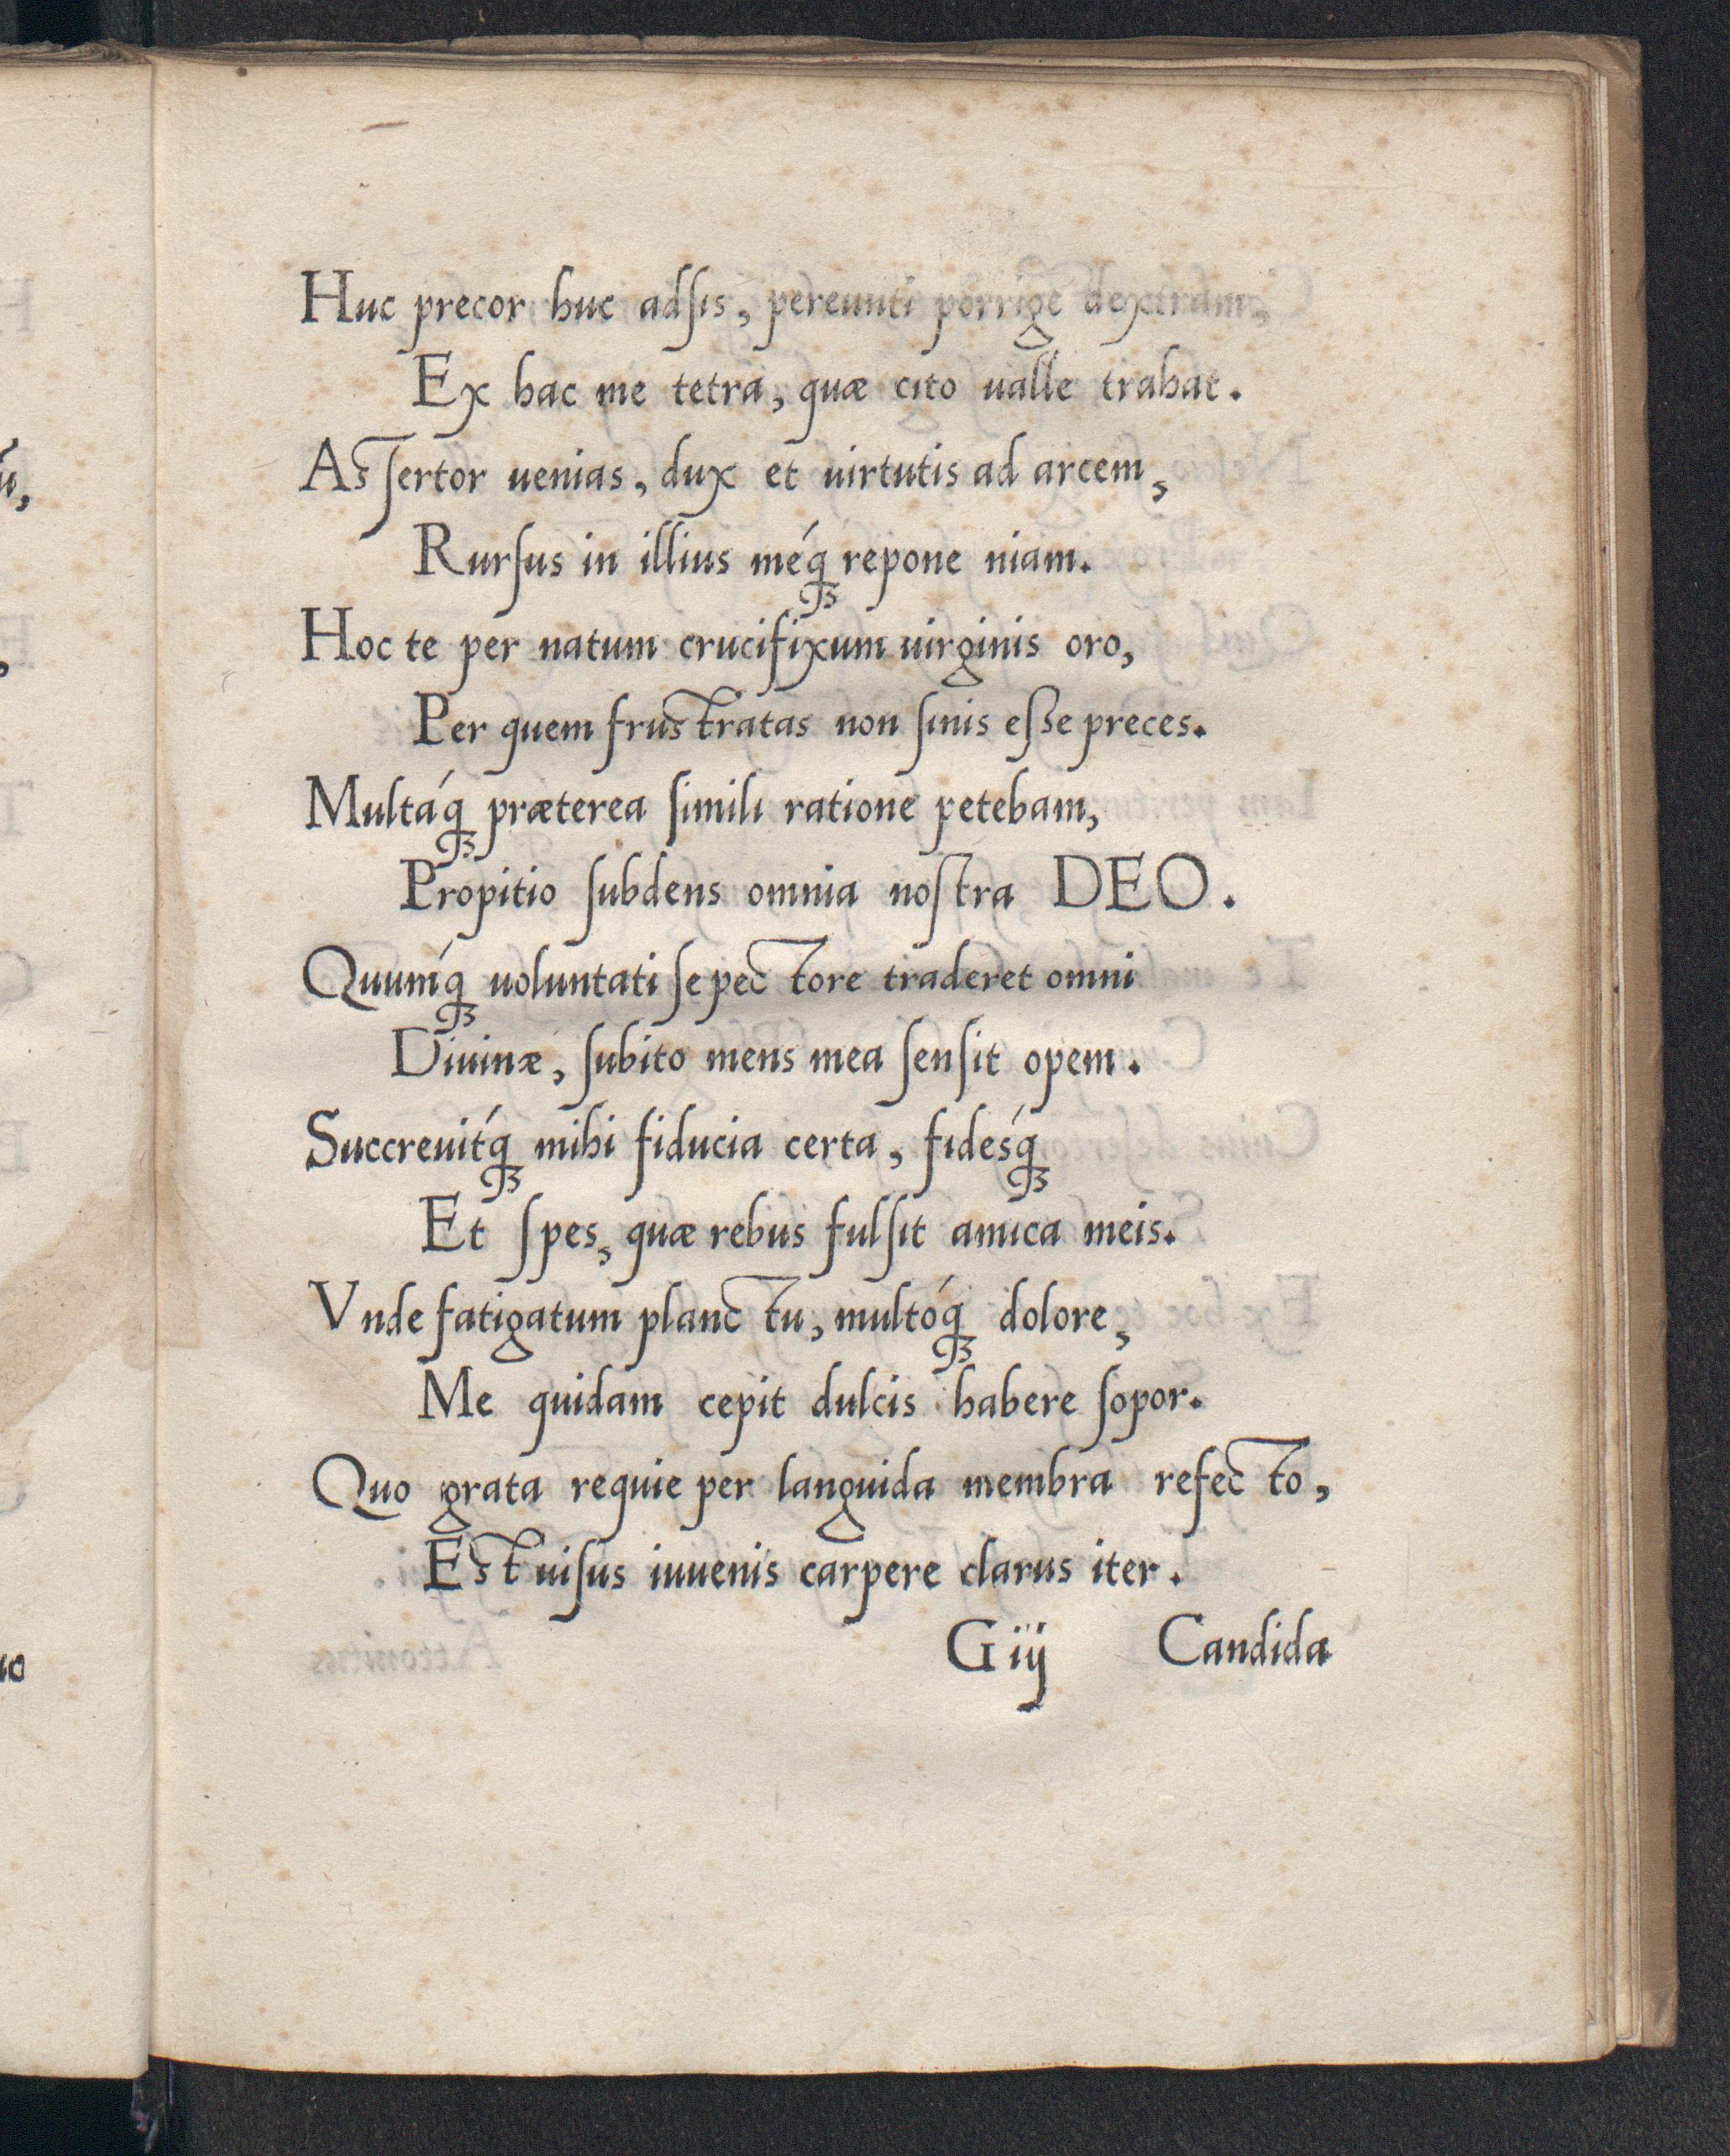 Huc precor huc adſis, pereunti porrige dextram,
Ex hac me tetra, quæ cito ualle trahat.
Asſertor uenias, dux et uirtutis ad arcem,
Rurſus in illius méq́ꝫ repone niam.
Hoc te per natum crucifixum uirginis oro,
Per quem frustratas non ſinis eſſe preces.
Multáq́ꝫ præterea ſimili ratione petebam,
Propitio ſubdens omnia noſtra DEO.
Quumq́ꝫ uoluntati ſe pectore traderet omni
Diuinæ, ſubito mens mea ſenſit opem.
Succreuitq́ꝫ mihi fiducia certa, fidesq́ꝫ
Et ſpes, quæ rebus fulſit amica meis.
Vnde fatigatum planctu, multóq́ꝫ dolore,
Me quidam cepit dulcis habere ſopor.
Quo grata requie per languida membra refecto,
Est uiſus iuuenis carpere clarus iter.
G iij Candida